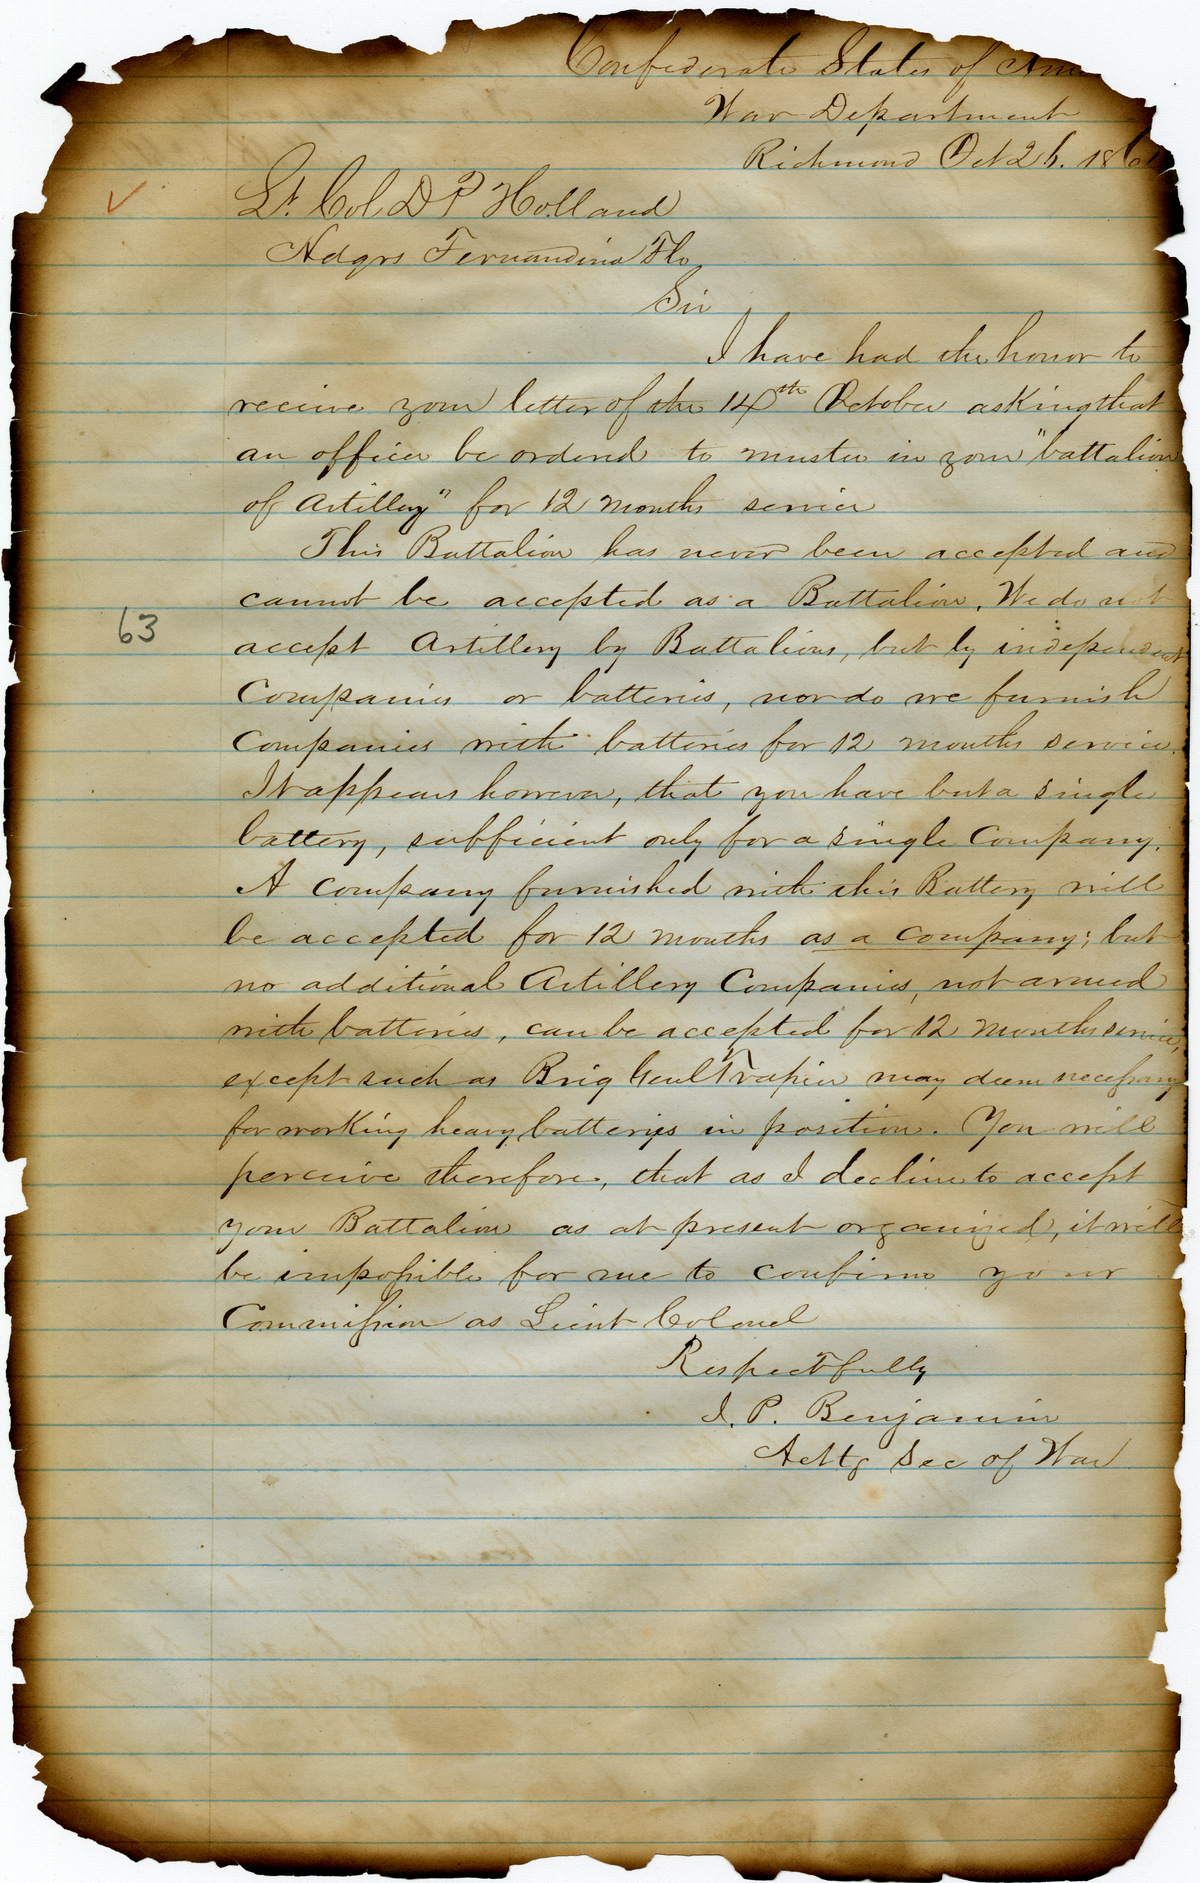 Confederate States of Ame
War Department
Richmond Oct 26. 1861
Lt. Col D P Holland
Hdqrs Fernandina Fla
Sir
I have had the honor to
receive your letter of the 14th October asking that
an officer be ordered to muster in your "battalion
of Artillery" for 12 months service
This Battalion has never been accepted and
cannot be accepted as a Battalion. We do not
63
accept Artillery by Battalions, but by independent
Companies or batteries, nor do we furnish
Companies with batteries for 12 months service.
It appears however, that you have but a single
battery, sufficient only for a single Company.
A Company furnished with this Battery will
be accepted for 12 months as a company; but
no additional Artillery Companies, not armed
with batteries, can be accepted for 12 months service,
except such as Brig Genl Trapier may deem necessary
for working heavy batteries in position. You will
perceive therefore, that as I decline to accept
your Battalion as at present organized, it will
be impossible for me to confirm your
Commission as Lieut Colonel
Respectfully
J. P. Benjamin
Actg Sec of War